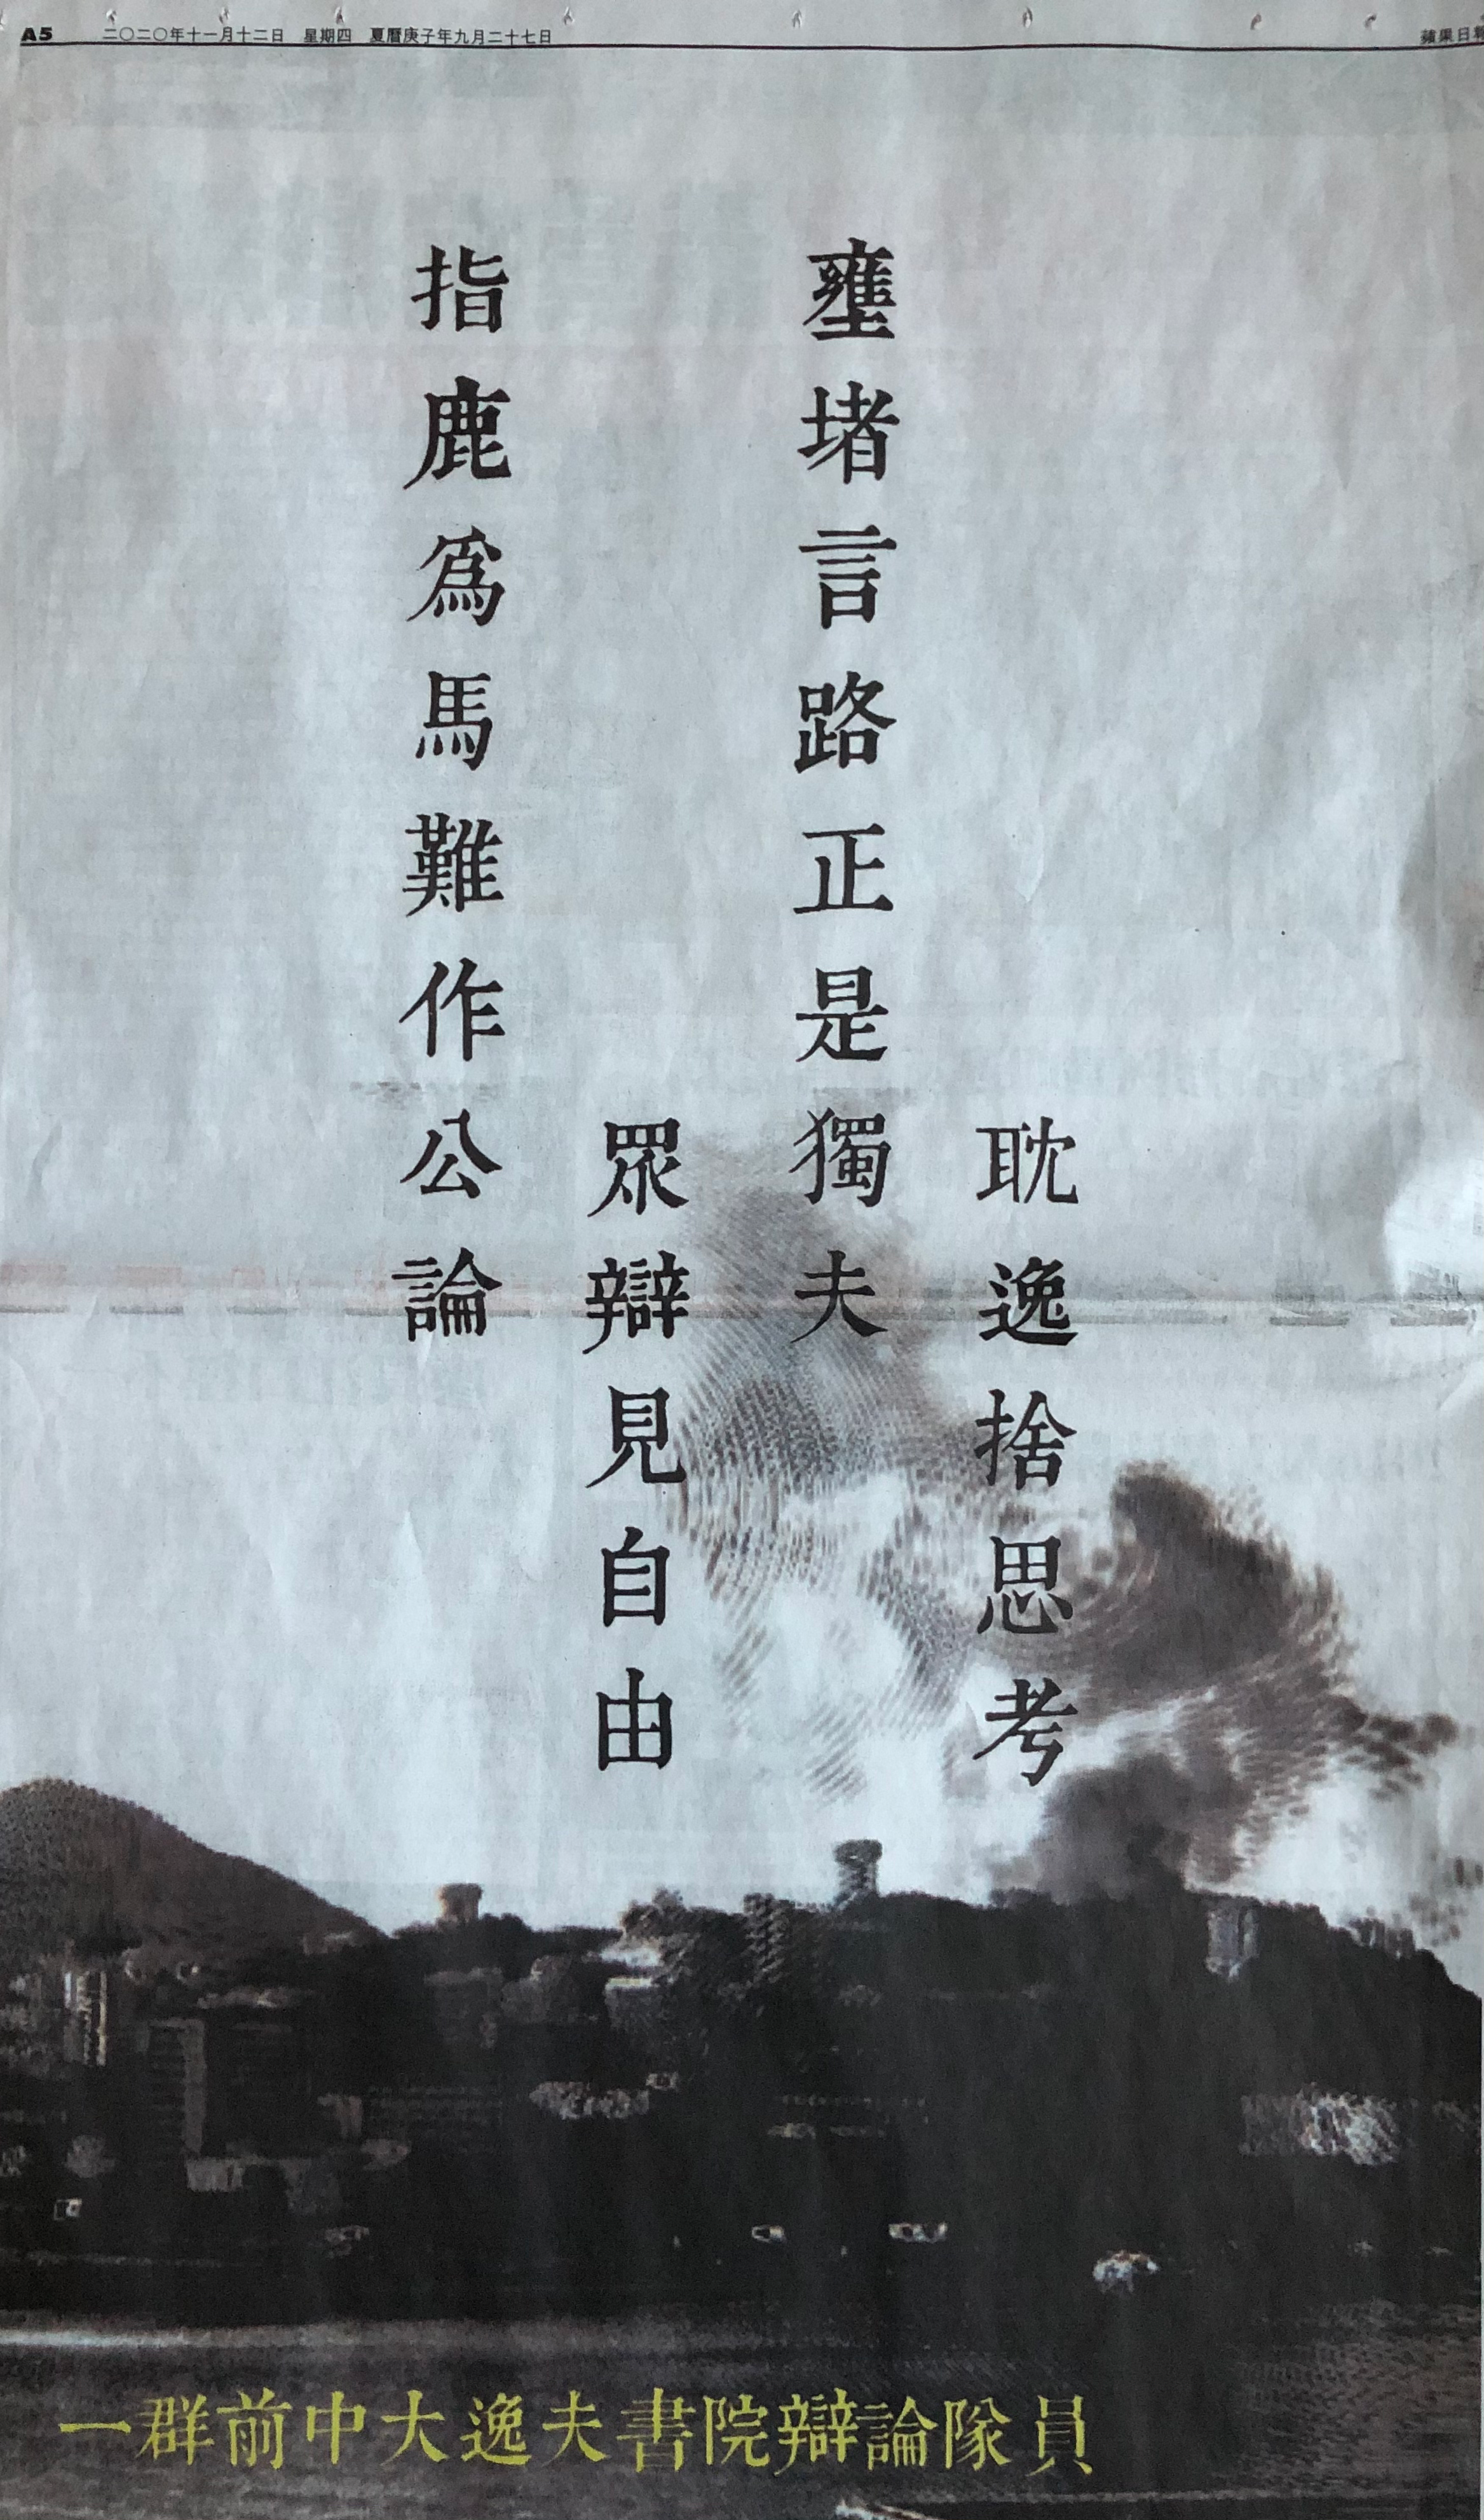 A5 二〇二〇年十一月十二日 星期四 夏曆庚子年九月二十七日
蘋果日報
耽逸捨思考
壅堵言路正是獨夫
眾辯見自由
指鹿爲馬難作公論
一群前中大逸夫書院辯論隊員